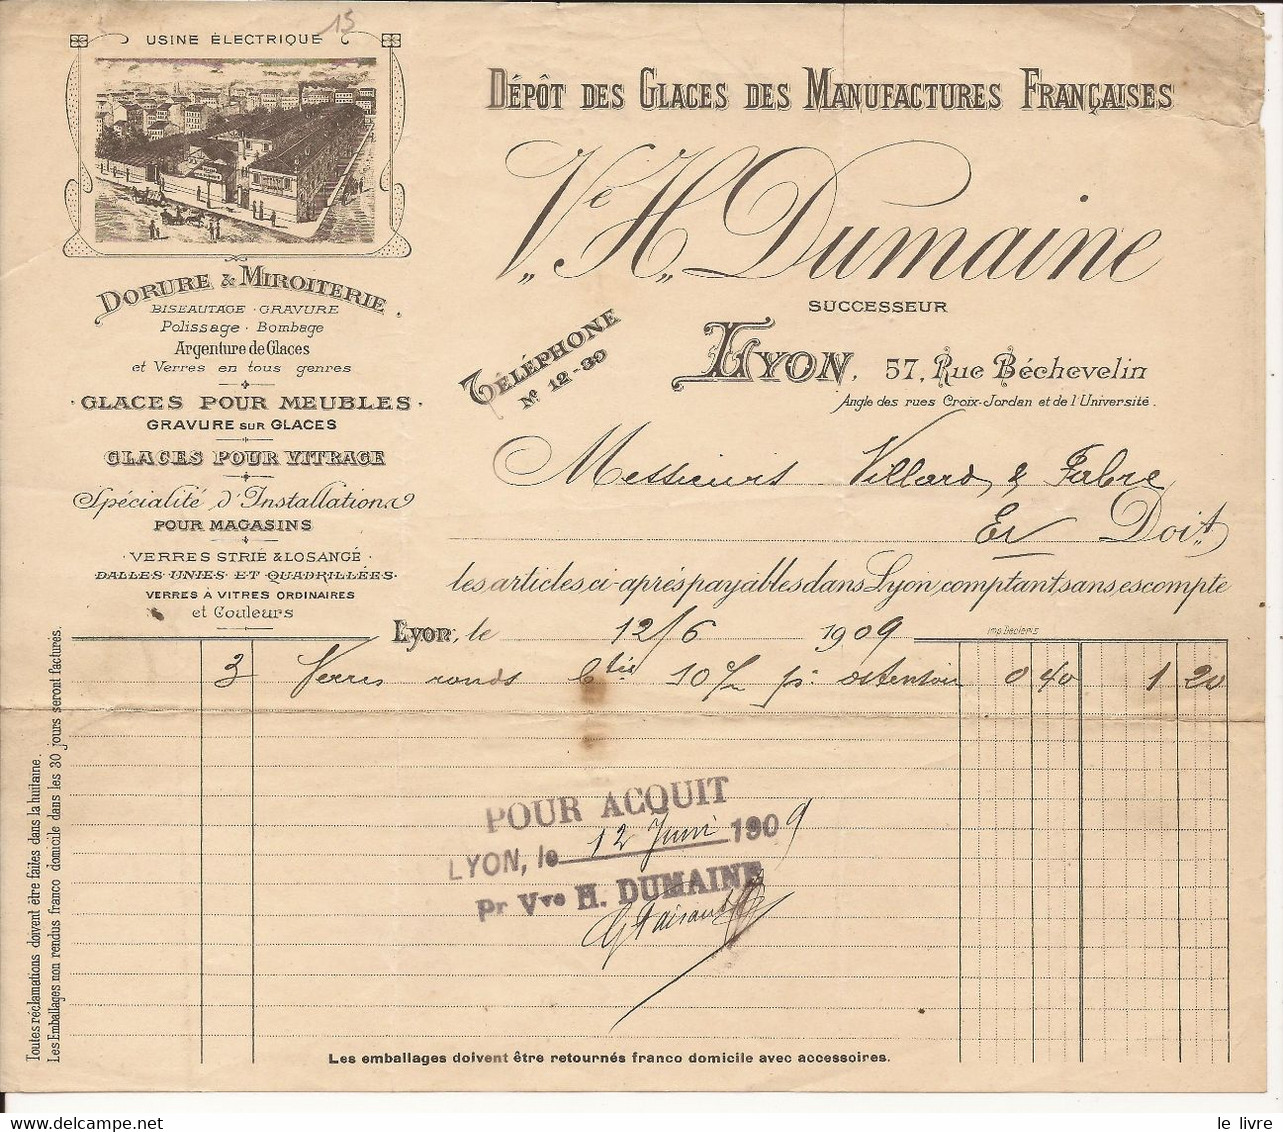 15
USINE ÉLECTRIQUE
DORURE & MIROITERIE
BISEAUTAGE · GRAVURE
Polissage · Bombage
Argenture de Glaces
et Verres en tous genres
· GLACES POUR MEUBLES ·
GRAVURE SUR GLACES
GLACES POUR VITRAGE
Spécialité d'Installations
POUR MAGASINS
· VERRES STRIÉ & LOSANGÉ ·
DALLES UNIES ET QUADRILLÉES
VERRES À VITRES ORDINAIRES
et Couleurs
DÉPÔT DES GLACES DES MANUFACTURES FRANÇAISES
Ve. H. Dumaine
SUCCESSEUR
TÉLÉPHONE
No 12-39
LYON, 57, Rue Béchevelin
Angle des rues Croix-Jordan et de l'Université.
Messieurs Villard & Fabre
Doit
les articles ci-après payables dans Lyon, comptant sans escompte
Lyon, le 12/6 1909
Imp. Decleris
3 Verres ronds 10 c/m pr. ostensoir 0 40 1 20
POUR ACQUIT
LYON, le 12 Juin 1909
Pr Vve H. DUMAINE
Toutes réclamations doivent être faites dans la huitaine.
Les Emballages non rendus franco domicile dans les 30 jours seront facturés.
Les emballages doivent être retournés franco domicile avec accessoires.
le livre